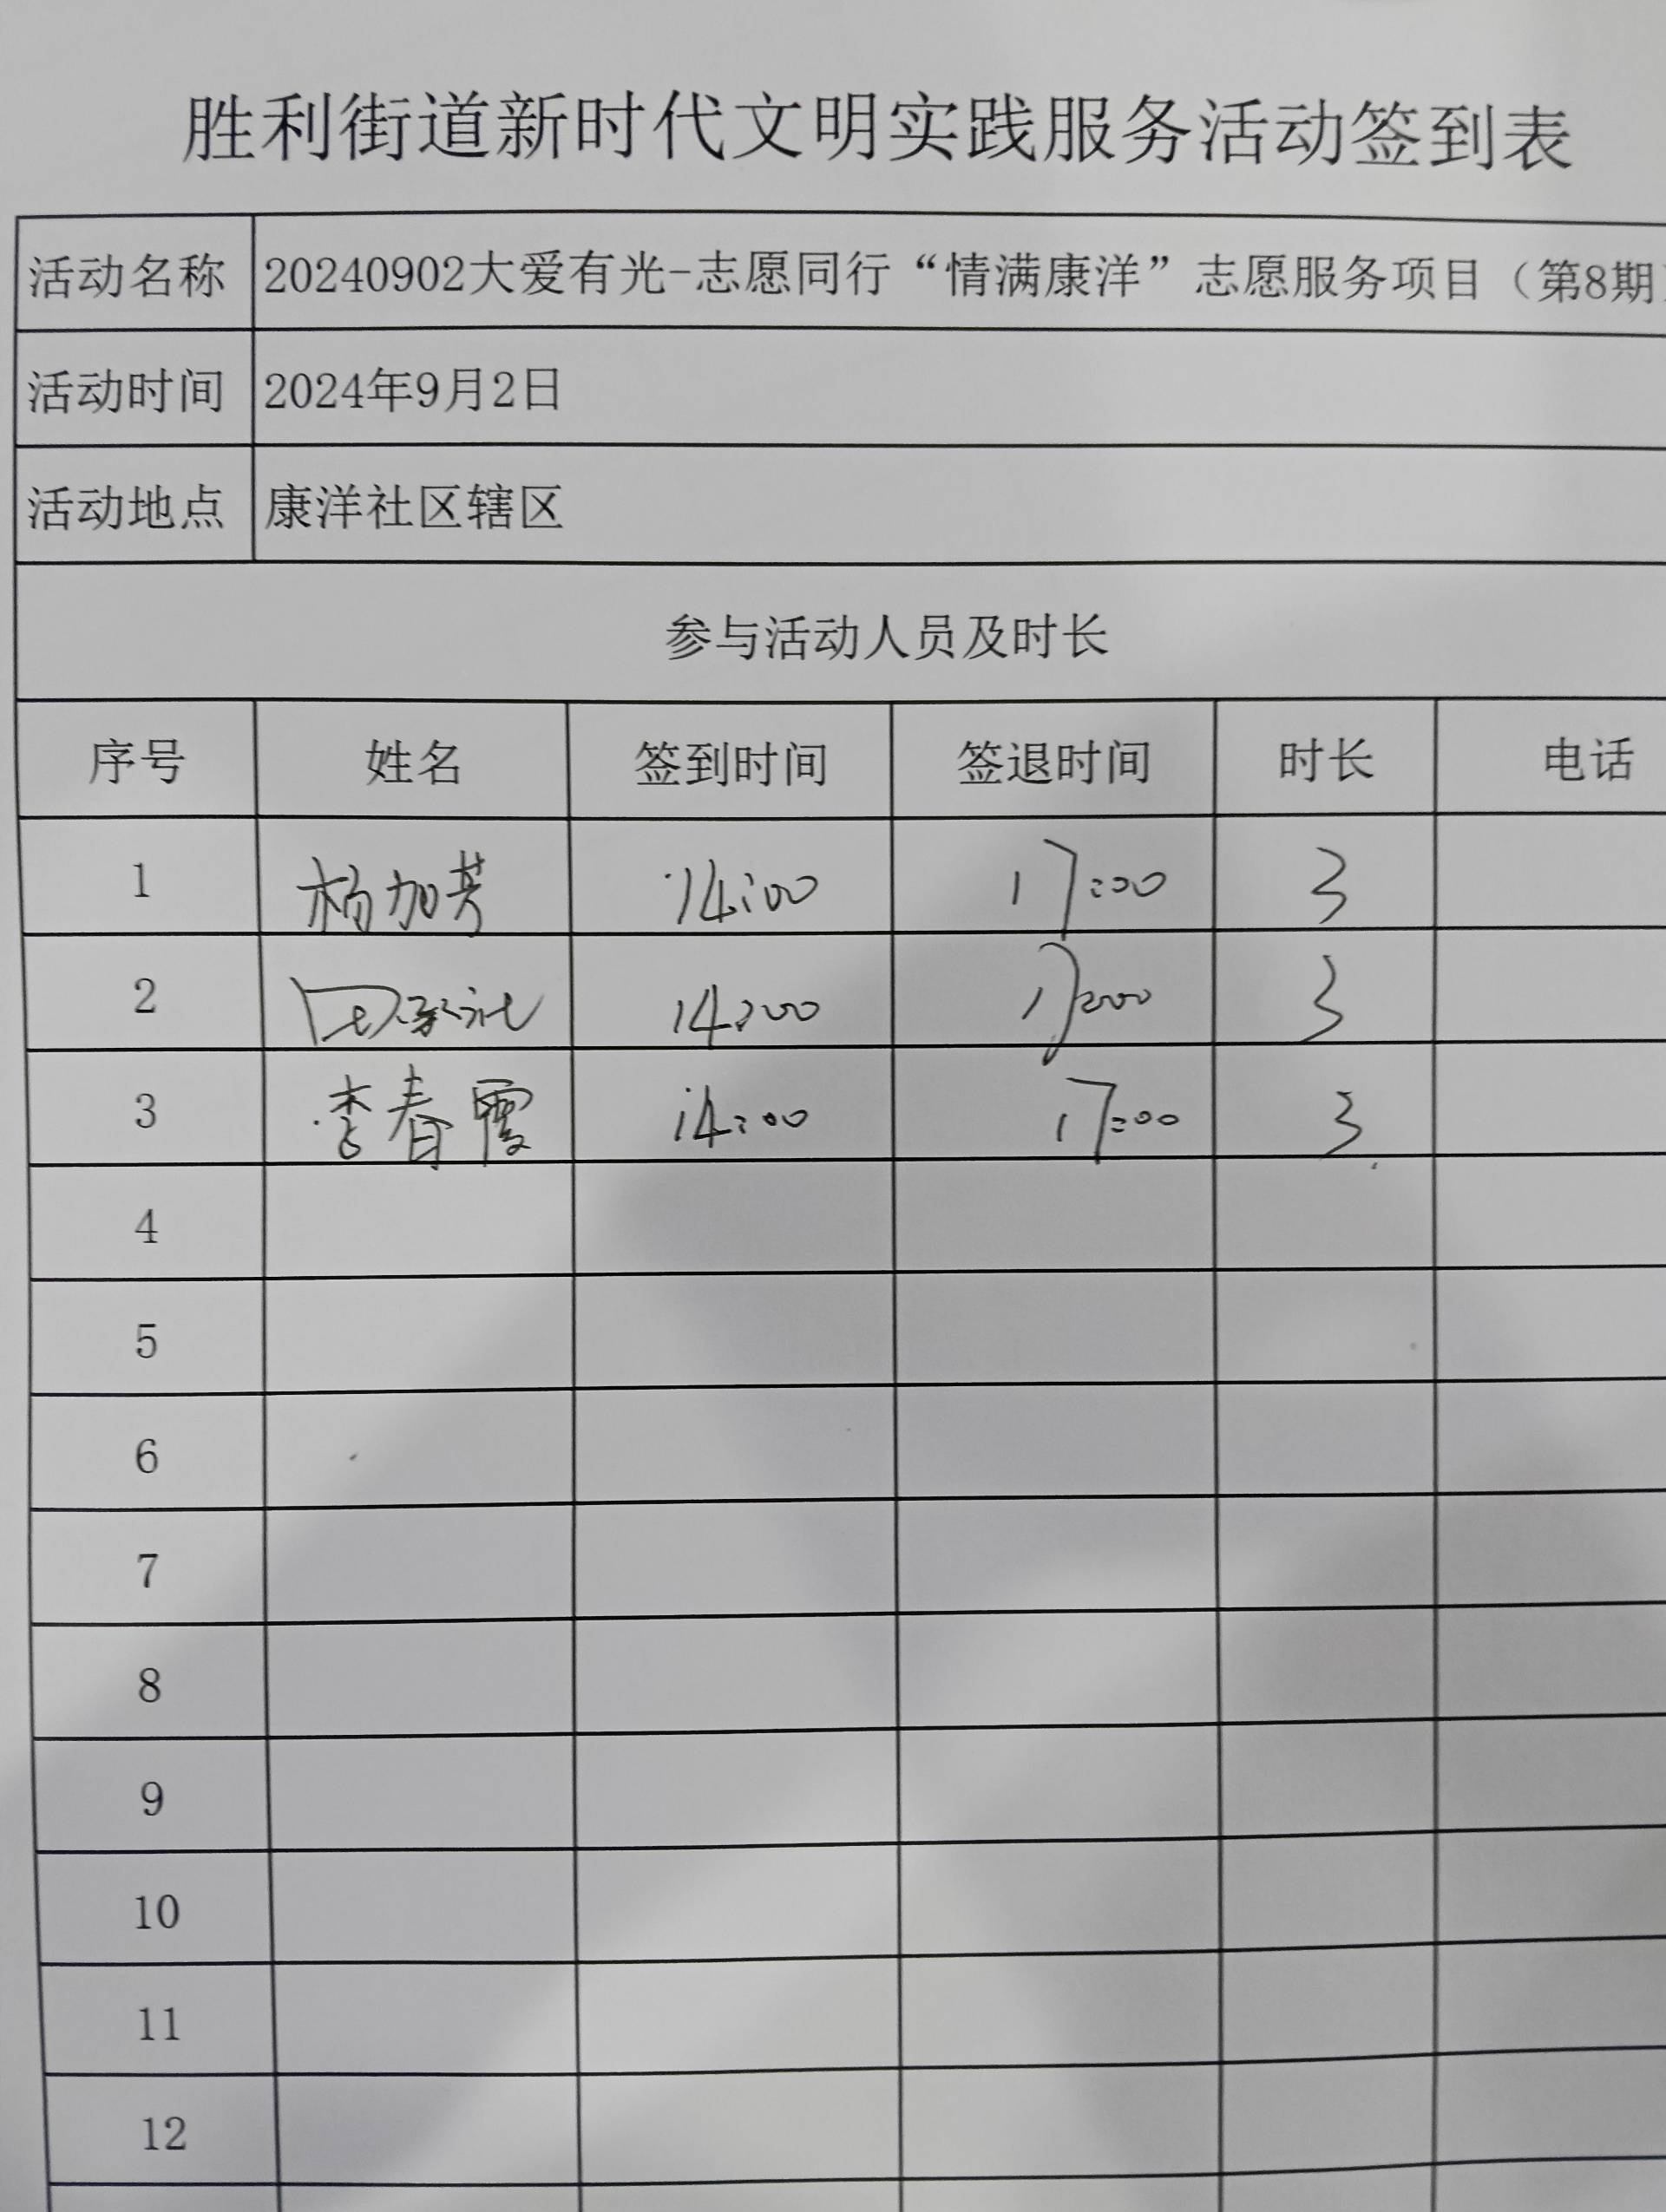 胜利街道新时代文明实践服务活动签到表
活动名称 20240902大爱有光-志愿同行“情满康洋”志愿服务项目（第8期）
活动时间 2024年9月2日
活动地点 康洋社区辖区
参与活动人员及时长
序号 姓名 签到时间 签退时间 时长 电话
1 杨加芳 14:00 17:00 3
2 14:00 17:00 3
3 李春霞 14:00 17:00 3
4
5
6
7
8
9
10
11
12